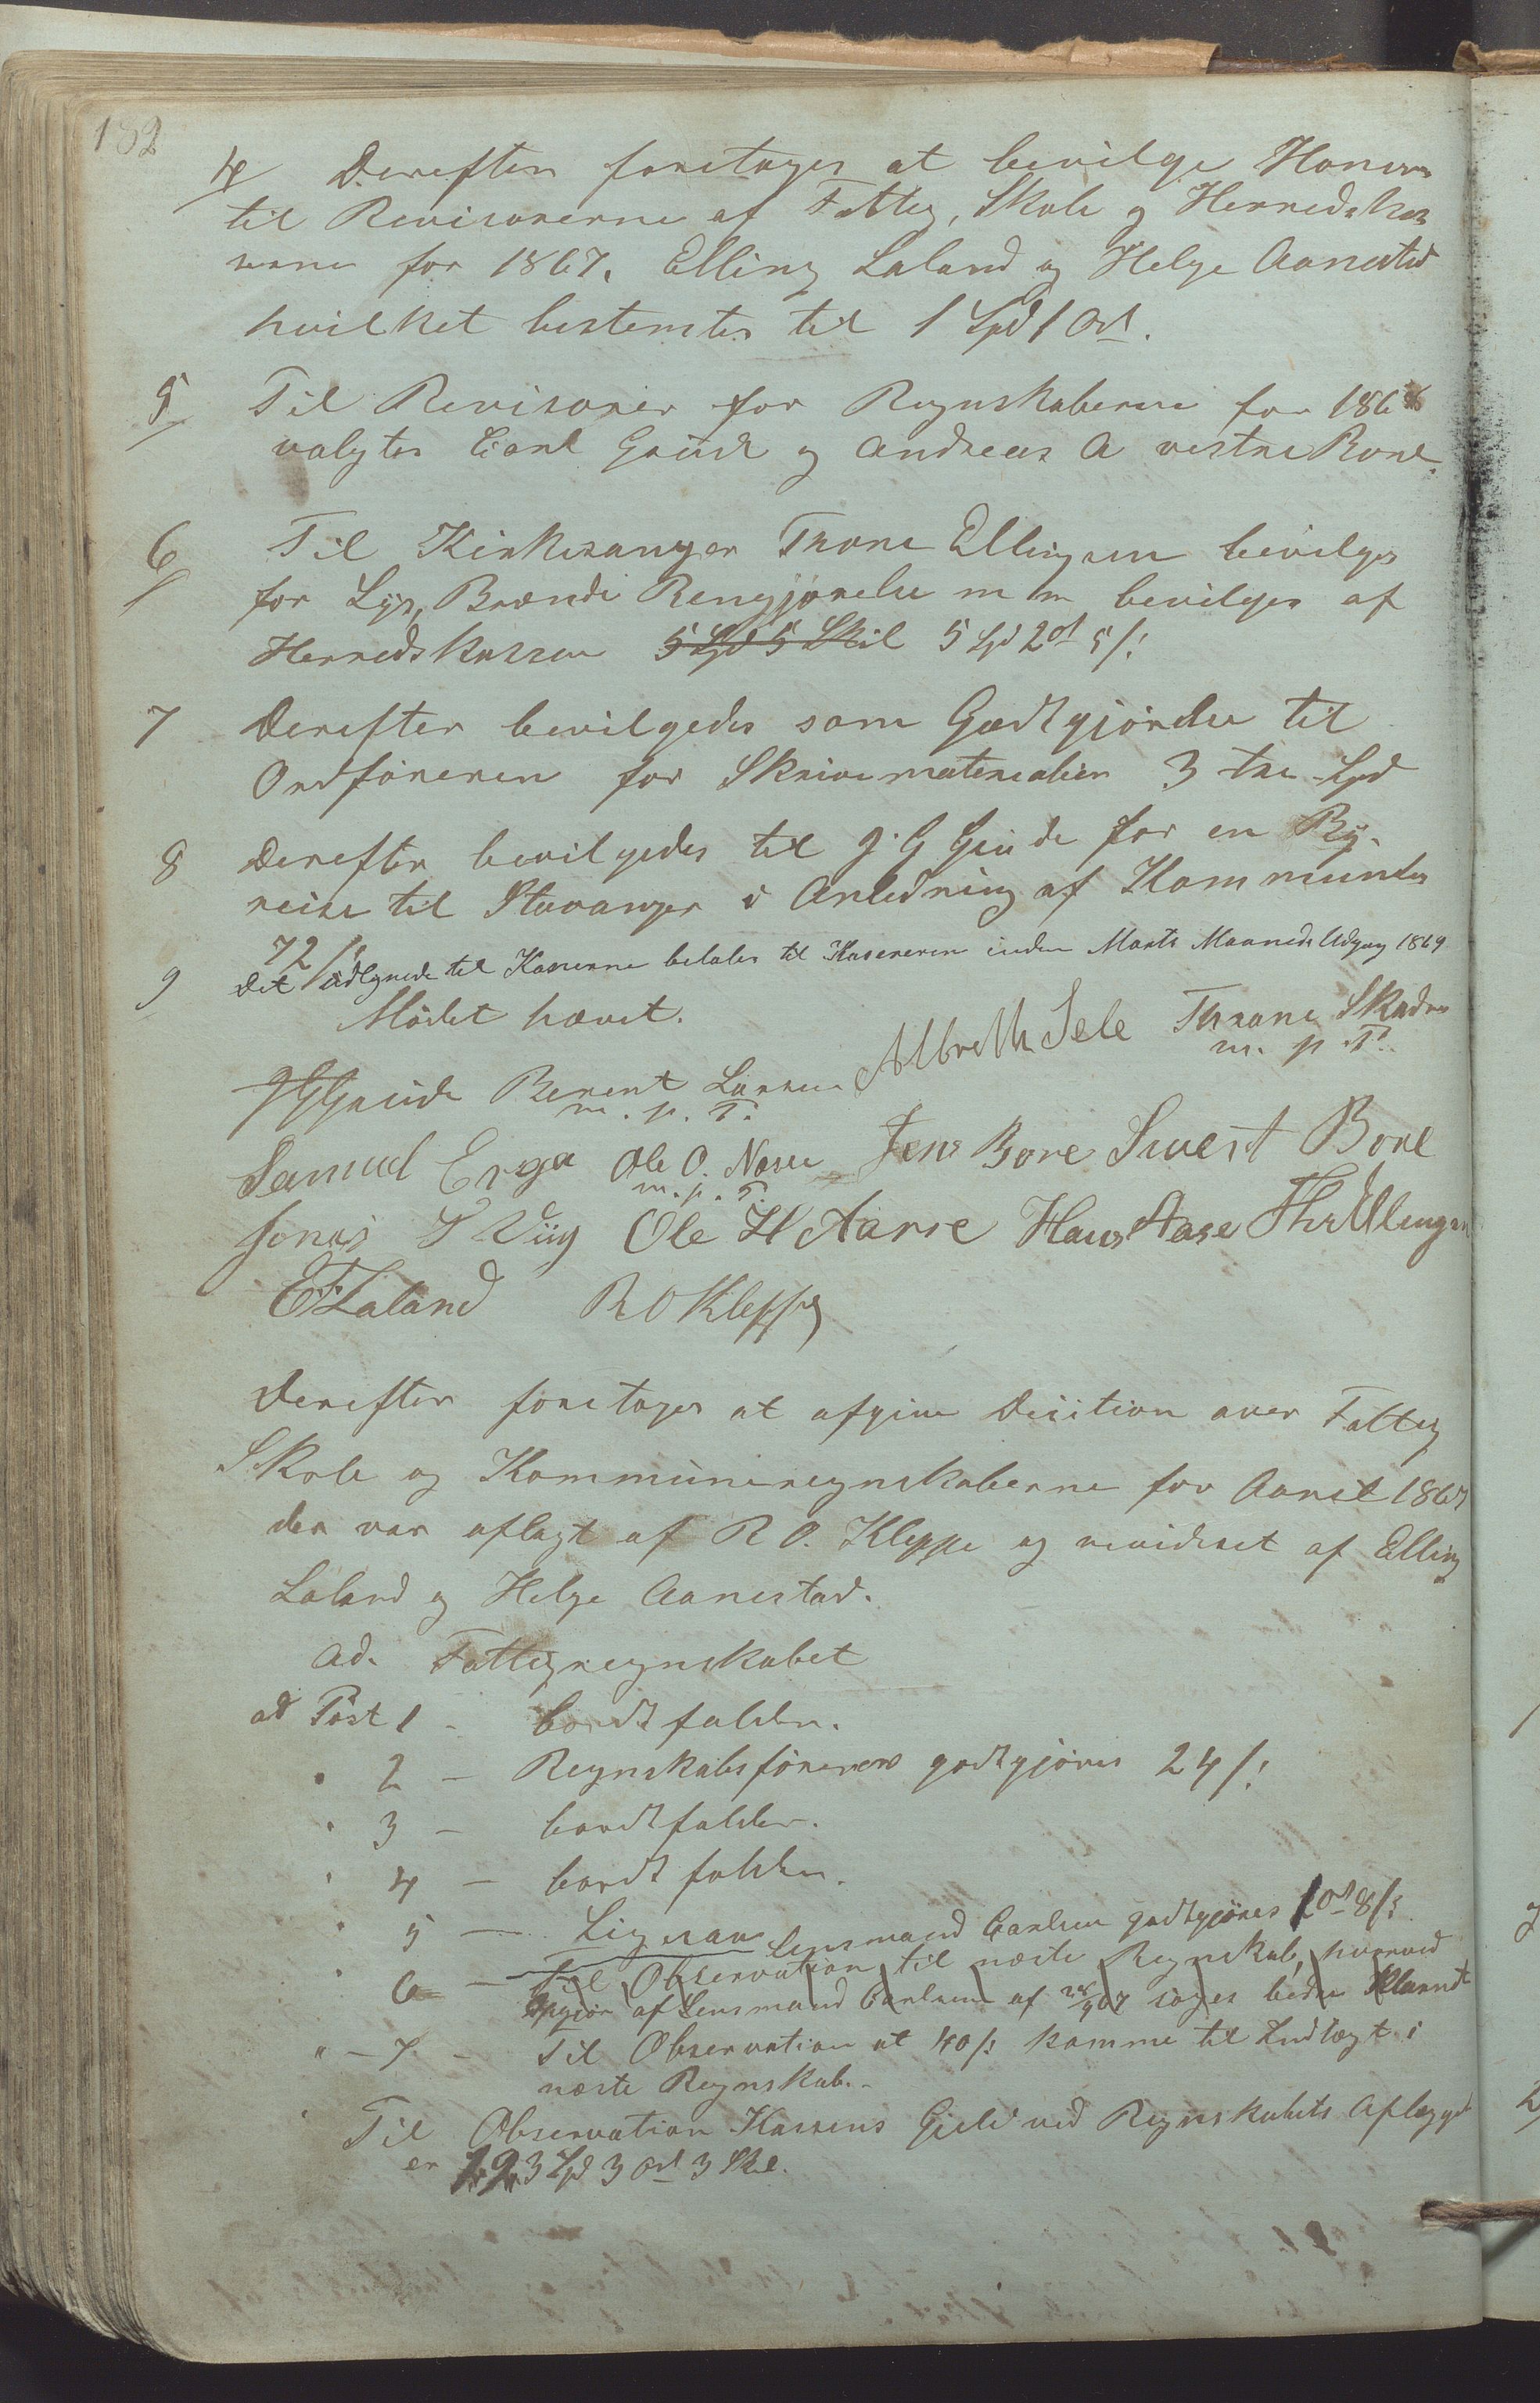 182
4/ Derefter foretages at bevilge Honorar
til Revisorerne af Fattig, Skole og Herredskas
serne for 1867. Elling Laland og Helge Aanestad
hvilket bestemtes til 1 Spd 1 Ort.
5/ Til Revisorer for Regnskaberne for 1868
valgtes Carl Grude og Andreas A vestre Bore.
6/ Til Kirkesanger Thore Ellingsen bevilges
for Lys, Brænde Rengjørelse m m bevilges af
Herredskassen 5 Spd 5 Skil 5 Spd 2 ort 5 /:
7 Derefter bevilgedes som Godtgjørelse til
Ordføreren for Skrivematerialier 3 tre Spd
8 Derefter bevilgedes til J. G Grude for en By-
reise til Stavanger i Anledning af Kommunens
72 /:
9 Det udlignede til Kasserne betales til Kassereren inden Marts Maaneds Udgang 1869
Mødet hævet.
Albreth Sele Thrane Skadse
m. p. P.
JGGrude Berent Larsen
m. p. P.
Samuel Erga Ole O. Næsse Jens Bore Sivert Bore
m. p. P.
Jonas S Viig Ole H Aarre Hans Aase ThEllingsen
EFLaland R O Kleppe
Derefter foretages at afgive Desition over Fattig
Skole og Kommuneregnskaberne for Aaret 1867
der var aflagt af R O. Kleppe og revideret af Elling
Laland og Helge Aanestad.
Ad. Fattigregnskabet
ad Post 1 - bortfalder.
" 2 - Regnskabsføreren godtgjøres 24 /:
" 3 - bortfalder.
" 4 - bortfalder.
" 5 - Ligesaa Lensmand Carlsen godtgjøres 1 Ort 8 /:
" 6 - Til Observation til næste Regnskab, hvorved
Opgjør af Lensmand Carlsen af 67 søges bedre Klaret
" - 7 - Til Observation at 40 /: komme til Indtægt i
næste Regnskab.
Til Observation Kassens Gjeld ved Regnskabets Aflæggelse
er 123 Spd 3 Ort 3 Skil.